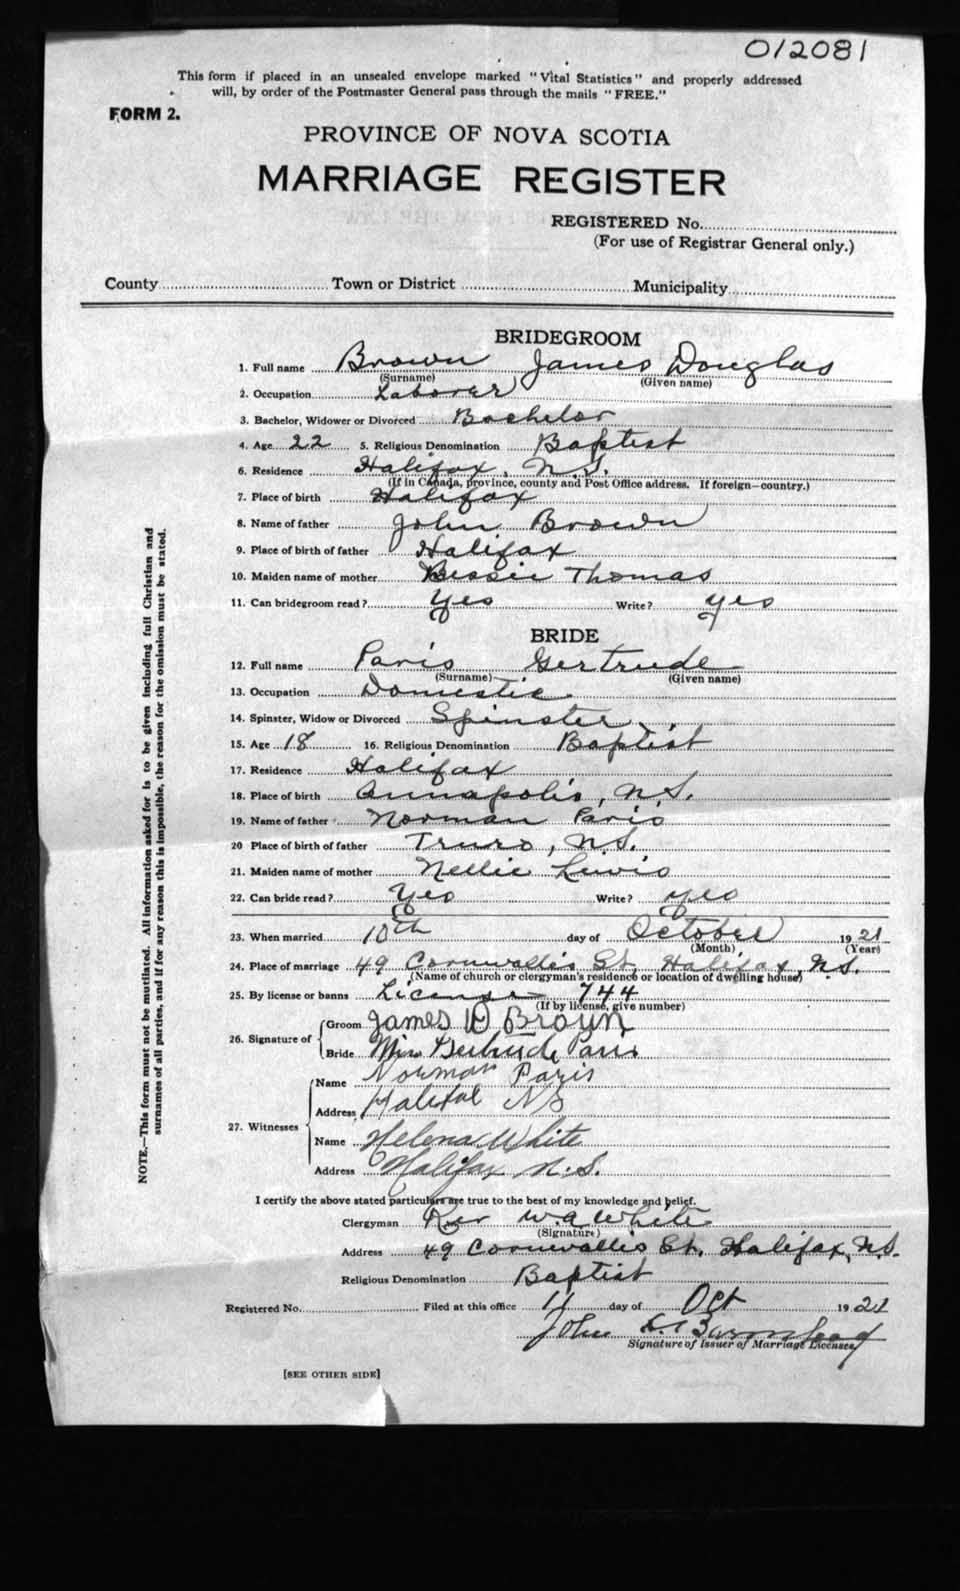 012081
This form if placed in an unsealed envelope marked "Vital Statistics" and properly addressed
will, by order of the Postmaster General pass through the mails "FREE."
FORM 2.
PROVINCE OF NOVA SCOTIA
MARRIAGE REGISTER
REGISTERED No.
(For use of Registrar General only.)
County Town or District Municipality
BRIDEGROOM
1. Full name Brown James Douglas
(Surname) (Given name)
2. Occupation Laborer
3. Bachelor, Widower or Divorced Bachelor
4. Age 22 5. Religious Denomination Baptist
6. Residence Halifax, N.S.
(If in Canada, province, county and Post Office address. If foreign—country.)
7. Place of birth Halifax
8. Name of father John Brown
9. Place of birth of father Halifax
10. Maiden name of mother Bessie Thomas
11. Can bridegroom read? Yes Write? yes
BRIDE
12. Full name Paris Gertrude
(Surname) (Given name)
13. Occupation Domestic
14. Spinster, Widow or Divorced Spinster
15. Age 18 16. Religious Denomination Baptist
17. Residence Halifax
18. Place of birth Annapolis, N.S.
19. Name of father Norman Paris
20 Place of birth of father Truro, N.S.
21. Maiden name of mother Nellie Lewis
22. Can bride read? Yes Write? yes
23. When married 10th day of October 1921
(Month) (Year)
24. Place of marriage 49 Cornwallis St. Halifax, N.S.
(Name of church or clergyman's residence or location of dwelling house)
25. By license or banns License 744
(If by license, give number)
26. Signature of
Groom James D Brown
Bride Miss Gertrude Paris
27. Witnesses
Name Norman Paris
Address Halifax NS
Name Helena White
Address Halifax N.S.
I certify the above stated particulars are true to the best of my knowledge and belief.
Clergyman Rev W.A White
(Signature)
Address 49 Cornwallis St. Halifax, N.S.
Religious Denomination Baptist
Registered No. Filed at this office 11 day of Oct 1921
John
Signature of Issuer of Marriage Licenses
[SEE OTHER SIDE]
NOTE.—This form must not be mutilated. All information asked for is to be given including full Christian and
surnames of all parties, and if for any reason this is impossible, the reason for the omission must be stated.